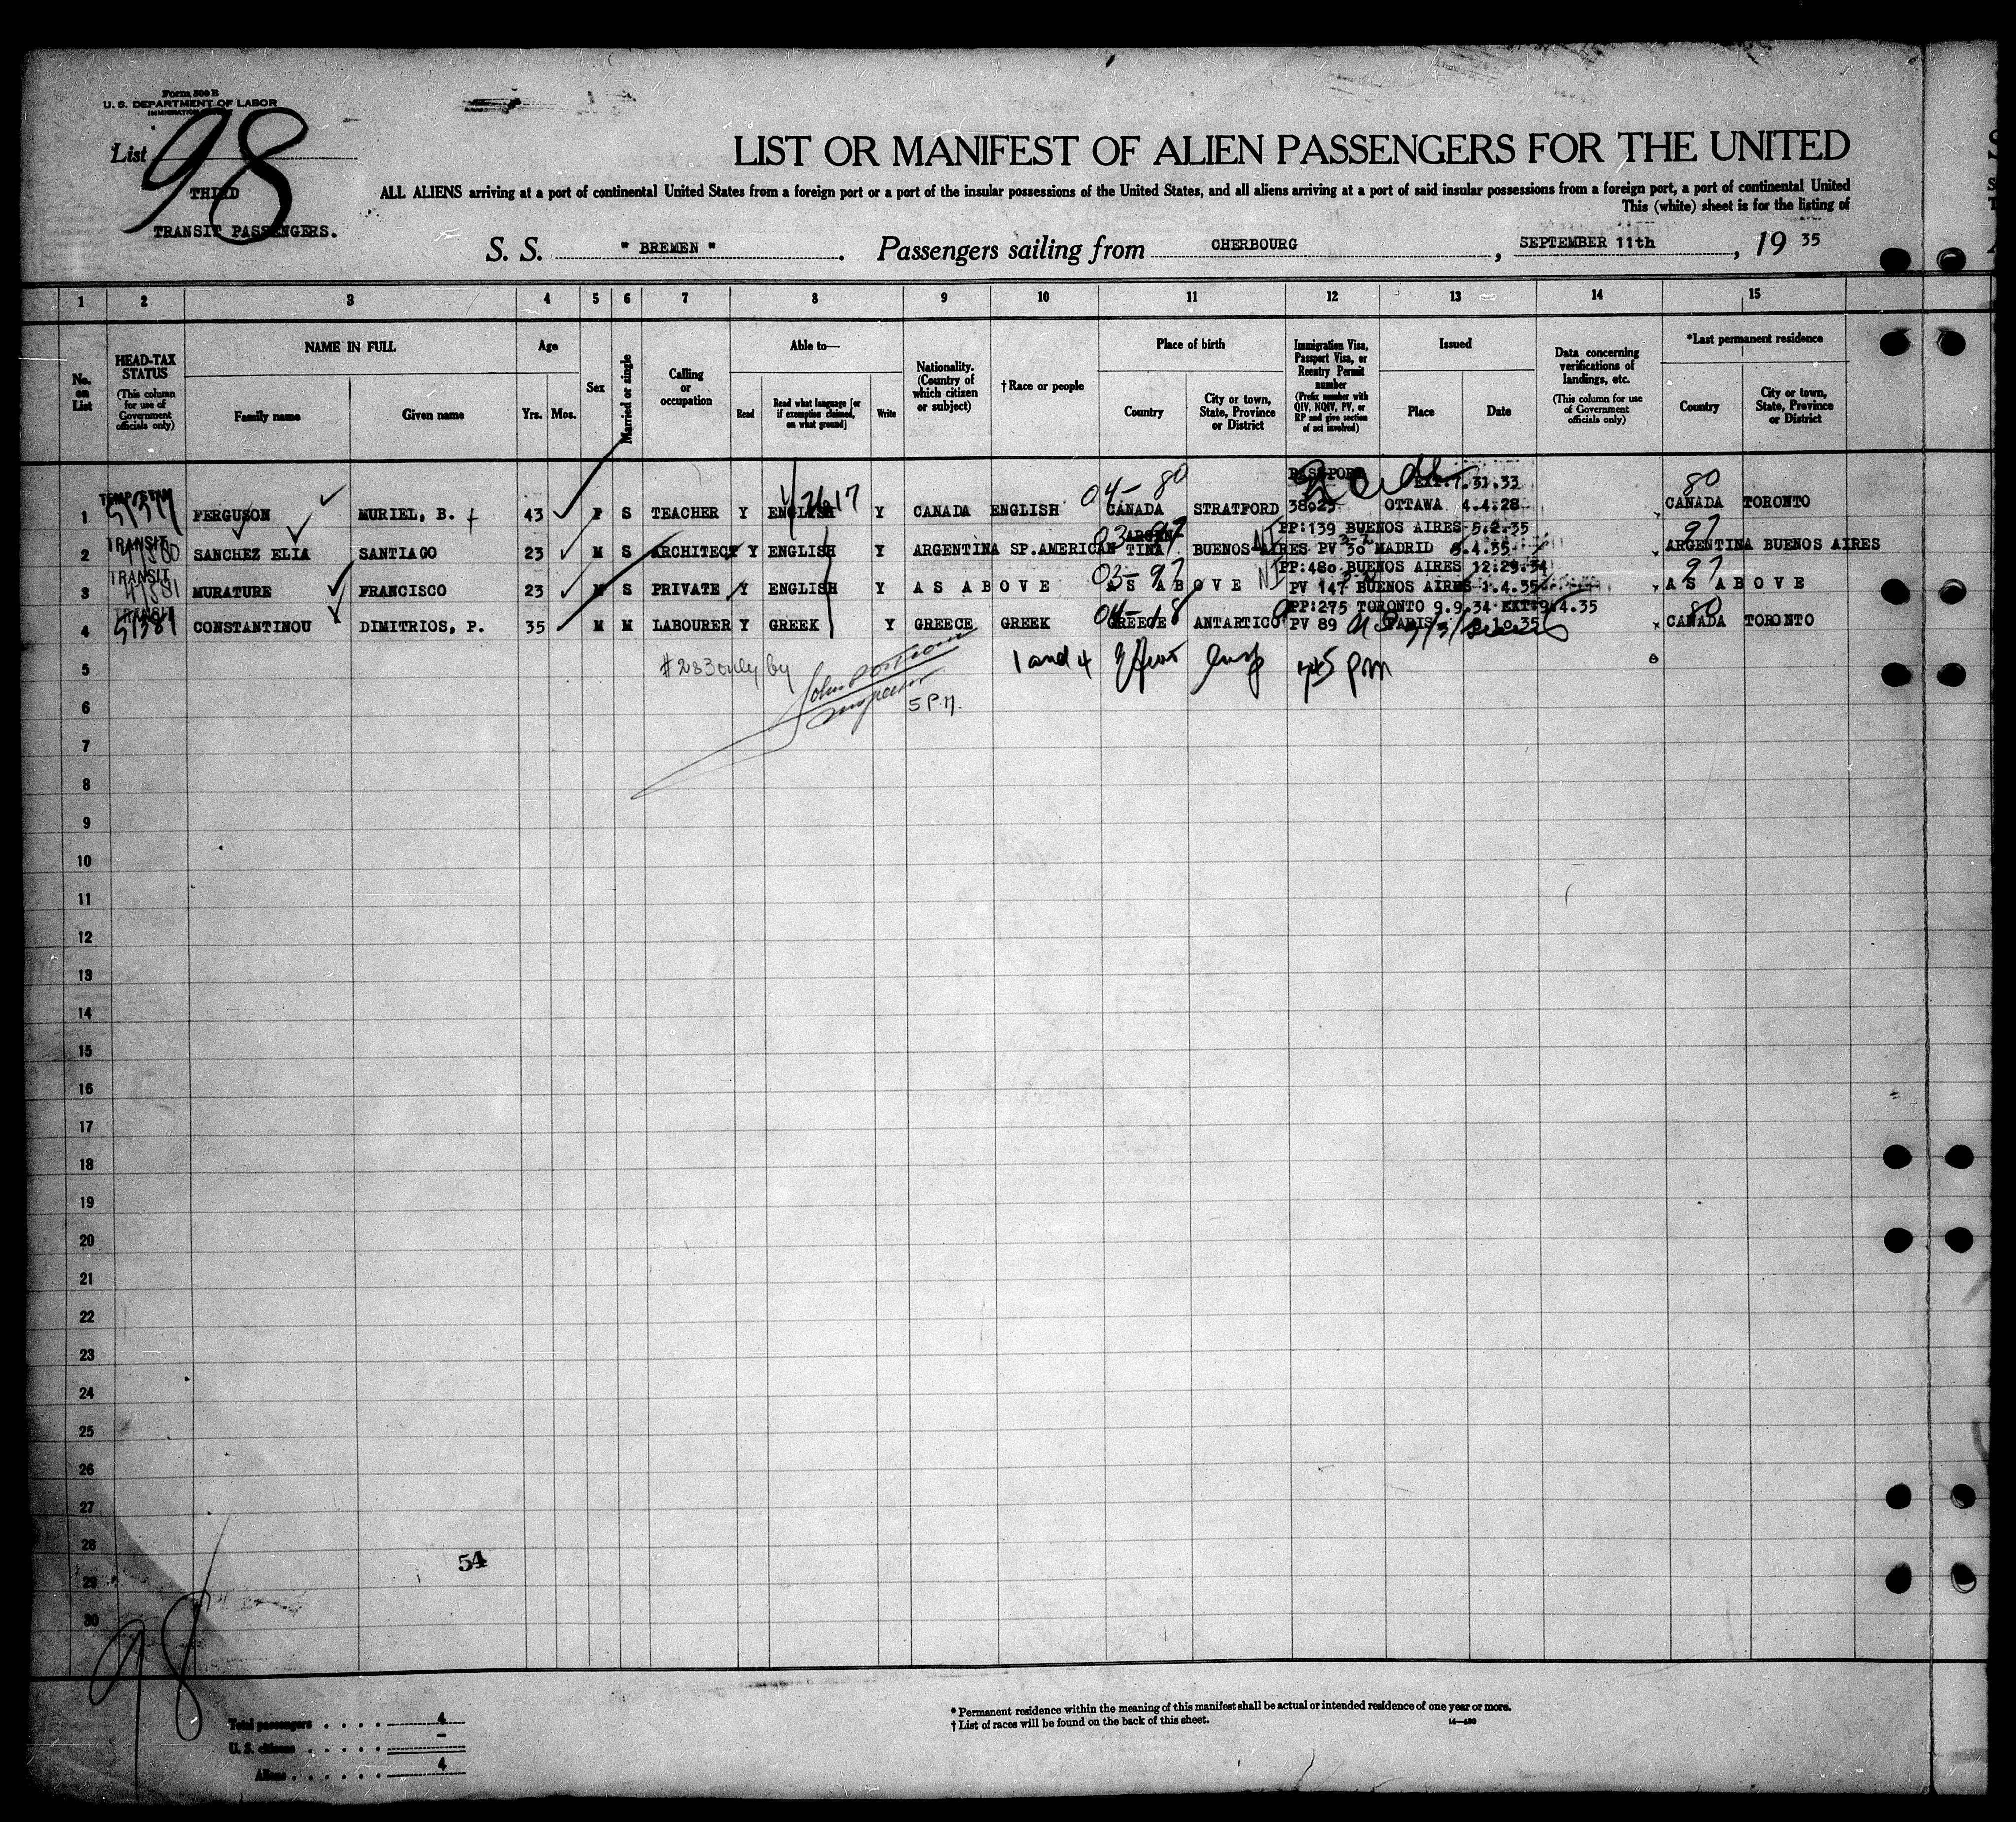 Form 500 B
U. S. DEPARTMENT OF LABOR
IMMIGRATION
List 98
THIRD
TRANSIT PASSENGERS.
LIST OR MANIFEST OF ALIEN PASSENGERS FOR THE UNITED
ALL ALIENS arriving at a port of continental United States from a foreign port or a port of the insular possessions of the United States, and all aliens arriving at a port of said insular possessions from a foreign port, a port of continental United
This (white) sheet is for the listing of
S. S. " BREMEN " . Passengers sailing from CHERBOURG , SEPTEMBER 11th , 19 35
1 2 3 4 5 6 7 8 9 10 11 12 13 14 15
No. on List
HEAD-TAX STATUS (This column for use of Government officials only)
NAME IN FULL Family name Given name
Age Yrs. Mos.
Sex
Married or single
Calling or occupation
Able to— Read Read what language [or if exemption claimed, on what ground] Write
Nationality. (Country of which citizen or subject)
†Race or people
Place of birth Country City or town, State, Province or District
Immigration Visa, Passport Visa, or Reentry Permit number (Prefix number with QIV, NQIV, PV, or RP and give section of act involved)
Issued Place Date
Data concerning verifications of landings, etc. (This column for use of Government officials only)
*Last permanent residence Country City or town, State, Province or District
04- 80 PASSPORT EXT: 7.31.33 80
1 FERGUSON MURIEL, B. 43 F S TEACHER Y ENGLISH Y CANADA ENGLISH CANADA STRATFORD 38025 OTTAWA 4.4.28 CANADA TORONTO
TRANSIT ARGEN PP:139 BUENOS AIRES 5.2.35 97
2 SANCHEZ ELIA SANTIAGO 23 M S ARCHITECT Y ENGLISH Y ARGENTINA SP.AMERICAN TINA BUENOS AIRES PV 30 MADRID .4.35 ARGENTINA BUENOS AIRES
TRANSIT 03-97 NI PP:480 BUENOS AIRES 12.29.34 97
3 MURATURE FRANCISCO 23 M S PRIVATE Y ENGLISH Y AS ABOVE AS ABOVE PV 147 BUENOS AIRES 1.4.35 AS ABOVE
TRANSIT PP:275 TORONTO 9.9.34 EXT: 9.4.35 80
4 CONSTANTINOU DIMITRIOS, P. 35 M M LABOURER Y GREEK Y GREECE GREEK GREECE ANTARTICO PV 89 PARIS CANADA TORONTO
5 #2&3 only by 1 and 4 745 pm
6 Inspector 5 P.M.
7
8
9
10
11
12
13
14
15
16
17
18
19
20
21
22
23
24
25
26
27
28
54
29
30
98
Total passengers . . . . 4
U. S. citizens . . . . . —
Aliens . . . . . . 4
* Permanent residence within the meaning of this manifest shall be actual or intended residence of one year or more.
† List of races will be found on the back of this sheet. 14—430